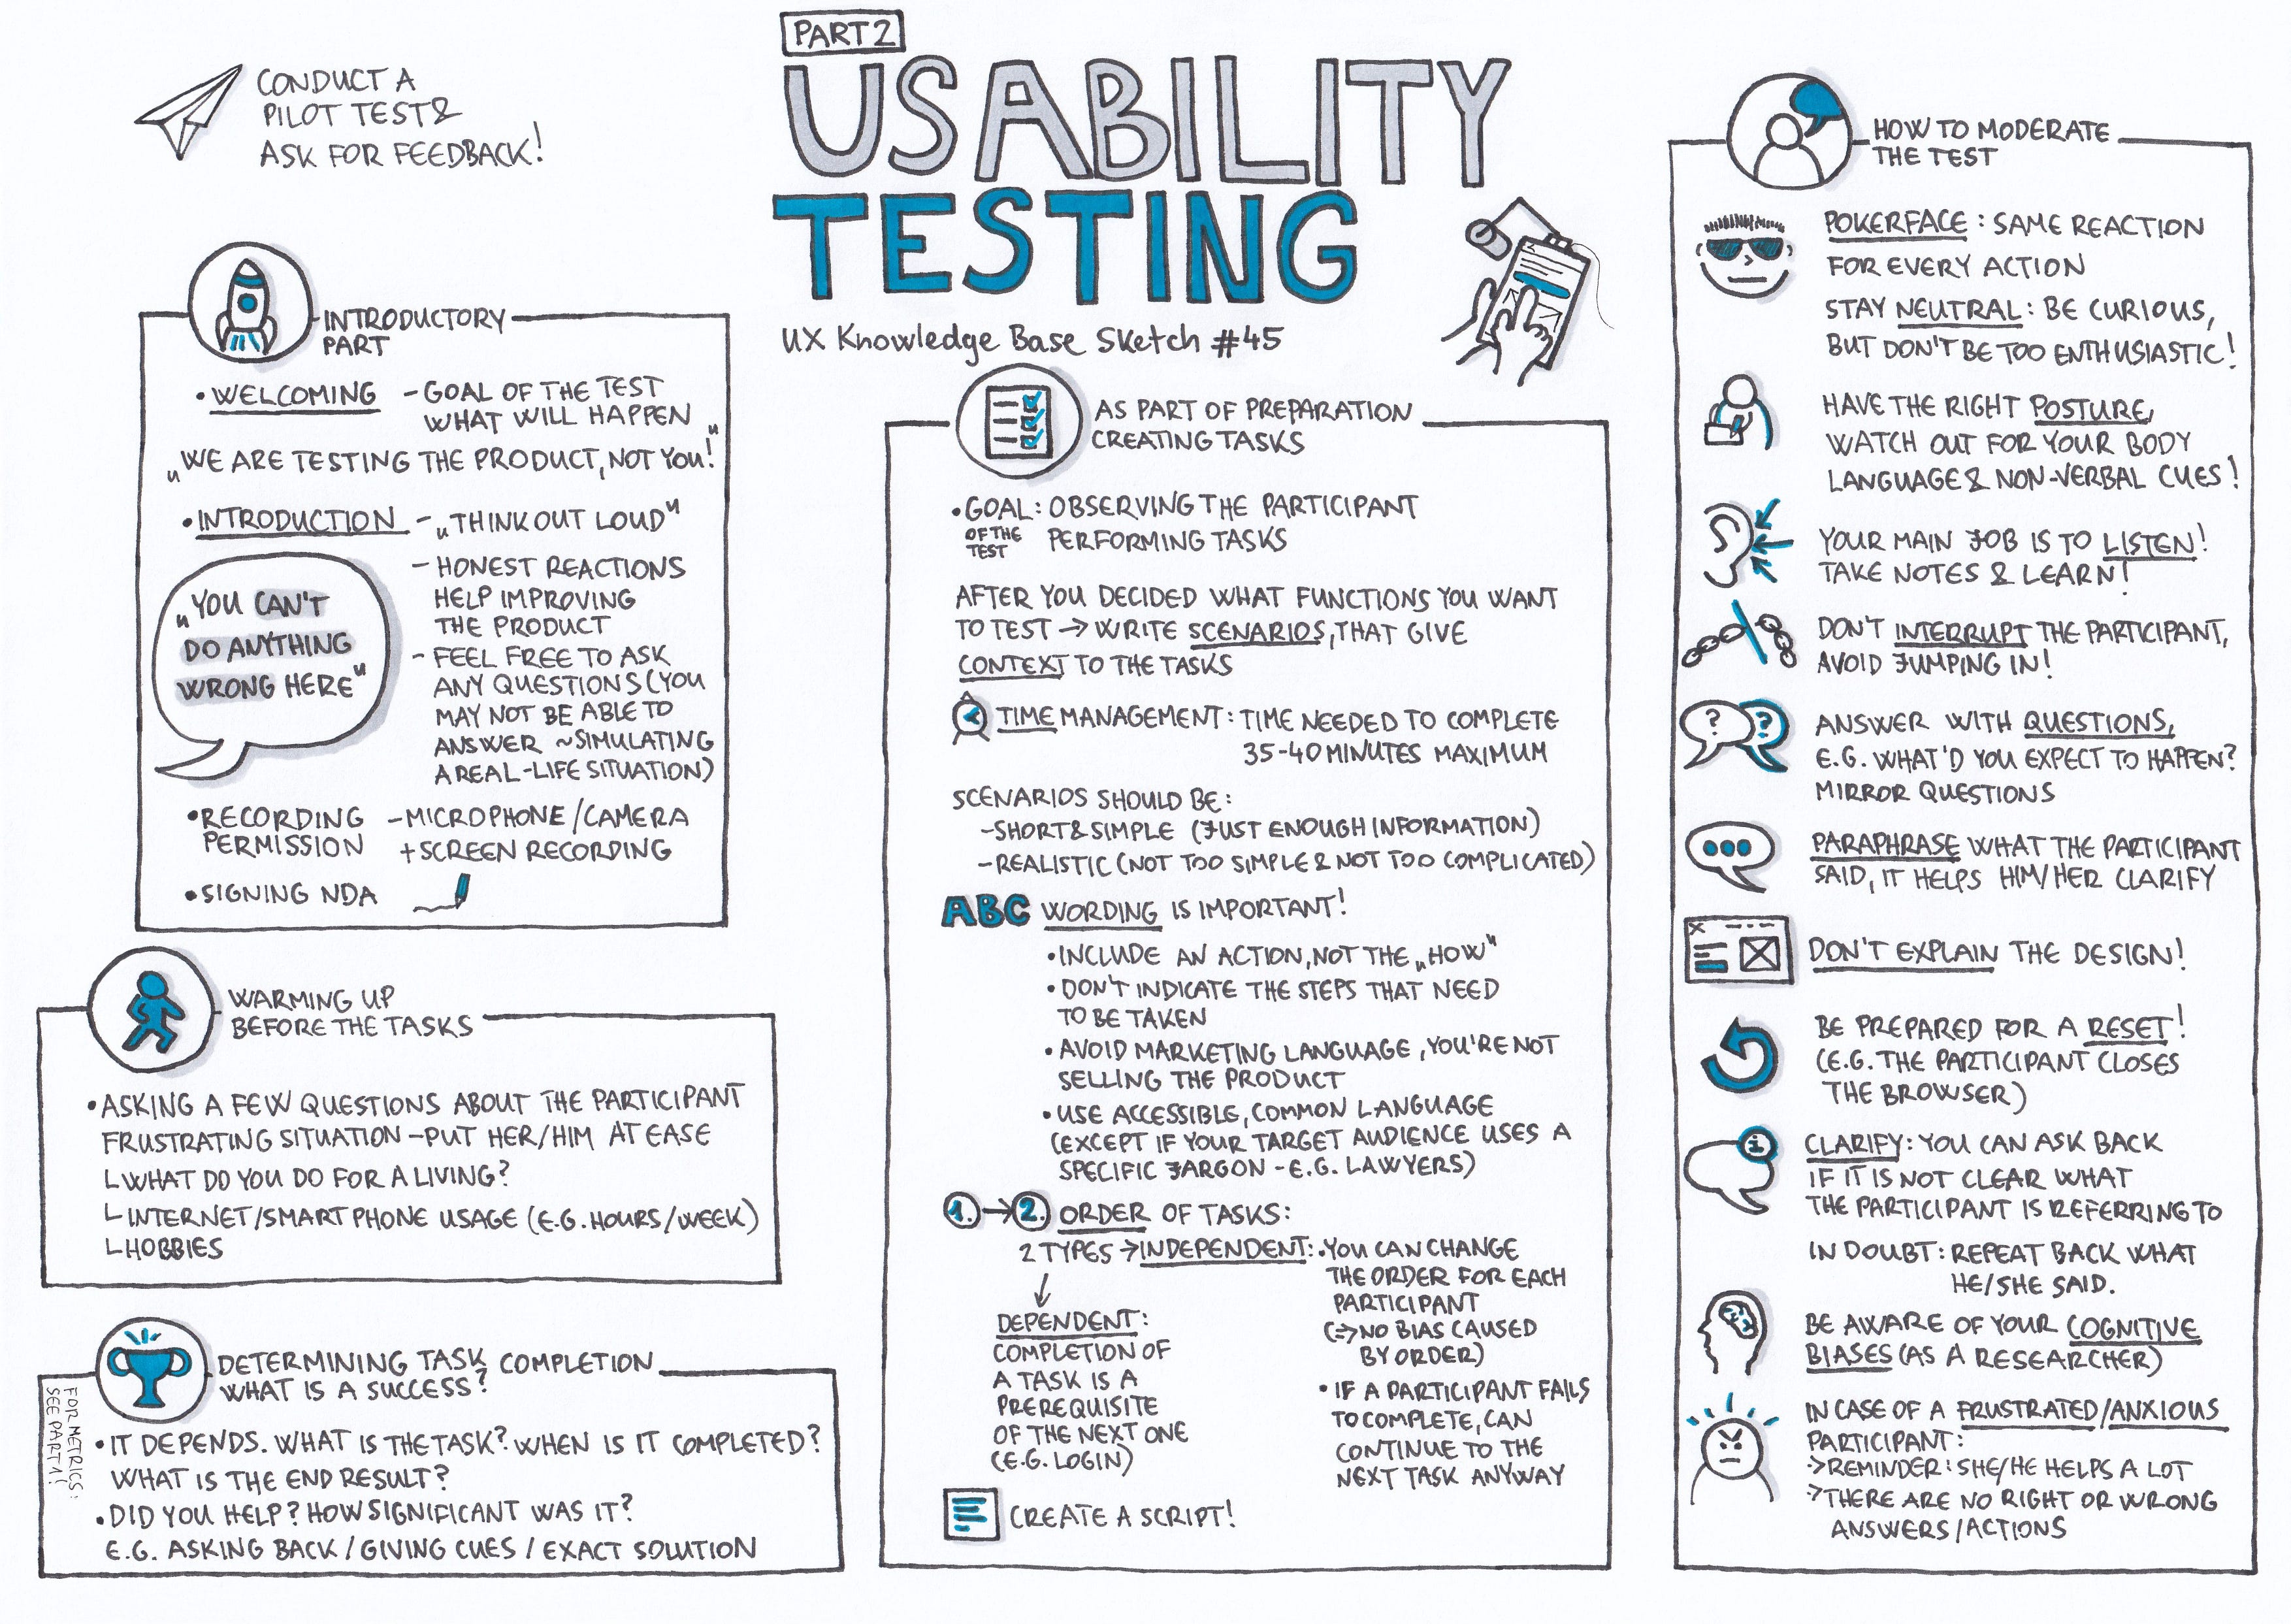 PART 2
USABILITY
TESTING
UX Knowledge Base Sketch #45
CONDUCT A
PILOT TEST &
ASK FOR FEEDBACK!
INTRODUCTORY
PART
• WELCOMING - GOAL OF THE TEST
WHAT WILL HAPPEN
„WE ARE TESTING THE PRODUCT, NOT YOU!"
• INTRODUCTION - „THINK OUT LOUD"
„YOU CAN'T
DO ANYTHING
WRONG HERE"
- HONEST REACTIONS
HELP IMPROVING
THE PRODUCT
- FEEL FREE TO ASK
ANY QUESTIONS (YOU
MAY NOT BE ABLE TO
ANSWER ~SIMULATING
A REAL-LIFE SITUATION)
• RECORDING - MICROPHONE/CAMERA
PERMISSION + SCREEN RECORDING
• SIGNING NDA
WARMING UP
BEFORE THE TASKS
• ASKING A FEW QUESTIONS ABOUT THE PARTICIPANT
FRUSTRATING SITUATION - PUT HER/HIM AT EASE
WHAT DO YOU DO FOR A LIVING?
INTERNET/SMARTPHONE USAGE (E.G. HOURS/WEEK)
HOBBIES
DETERMINING TASK COMPLETION
WHAT IS A SUCCESS?
FOR METRICS:
SEE PART 1!
• IT DEPENDS. WHAT IS THE TASK? WHEN IS IT COMPLETED?
WHAT IS THE END RESULT?
• DID YOU HELP? HOW SIGNIFICANT WAS IT?
E.G. ASKING BACK / GIVING CUES / EXACT SOLUTION
AS PART OF PREPARATION
CREATING TASKS
• GOAL: OBSERVING THE PARTICIPANT
OF THE
TEST
PERFORMING TASKS
AFTER YOU DECIDED WHAT FUNCTIONS YOU WANT
TO TEST → WRITE SCENARIOS, THAT GIVE
CONTEXT TO THE TASKS
TIME MANAGEMENT: TIME NEEDED TO COMPLETE
35-40 MINUTES MAXIMUM
SCENARIOS SHOULD BE:
- SHORT & SIMPLE (JUST ENOUGH INFORMATION)
- REALISTIC (NOT TOO SIMPLE & NOT TOO COMPLICATED)
ABC WORDING IS IMPORTANT!
• INCLUDE AN ACTION, NOT THE „HOW"
• DON'T INDICATE THE STEPS THAT NEED
TO BE TAKEN
• AVOID MARKETING LANGUAGE, YOU'RE NOT
SELLING THE PRODUCT
• USE ACCESSIBLE, COMMON LANGUAGE
(EXCEPT IF YOUR TARGET AUDIENCE USES A
SPECIFIC JARGON - E.G. LAWYERS)
1. → 2. ORDER OF TASKS:
2 TYPES → INDEPENDENT: • YOU CAN CHANGE
THE ORDER FOR EACH
PARTICIPANT
(⇒ NO BIAS CAUSED
BY ORDER)
• IF A PARTICIPANT FAILS
TO COMPLETE, CAN
CONTINUE TO THE
NEXT TASK ANYWAY
↓
DEPENDENT:
COMPLETION OF
A TASK IS A
PREREQUISITE
OF THE NEXT ONE
(E.G. LOGIN)
CREATE A SCRIPT!
HOW TO MODERATE
THE TEST
POKERFACE: SAME REACTION
FOR EVERY ACTION
STAY NEUTRAL: BE CURIOUS,
BUT DON'T BE TOO ENTHUSIASTIC!
HAVE THE RIGHT POSTURE,
WATCH OUT FOR YOUR BODY
LANGUAGE & NON-VERBAL CUES!
YOUR MAIN JOB IS TO LISTEN!
TAKE NOTES & LEARN!
DON'T INTERRUPT THE PARTICIPANT,
AVOID JUMPING IN!
? ?
ANSWER WITH QUESTIONS,
E.G. WHAT'D YOU EXPECT TO HAPPEN?
MIRROR QUESTIONS
PARAPHRASE WHAT THE PARTICIPANT
SAID, IT HELPS HIM/HER CLARIFY
DON'T EXPLAIN THE DESIGN!
BE PREPARED FOR A RESET!
(E.G. THE PARTICIPANT CLOSES
THE BROWSER)
i
CLARIFY: YOU CAN ASK BACK
IF IT IS NOT CLEAR WHAT
THE PARTICIPANT IS REFERRING TO
IN DOUBT: REPEAT BACK WHAT
HE/SHE SAID.
BE AWARE OF YOUR COGNITIVE
BIASES (AS A RESEARCHER)
IN CASE OF A FRUSTRATED/ANXIOUS
PARTICIPANT:
> REMINDER: SHE/HE HELPS A LOT
> THERE ARE NO RIGHT OR WRONG
ANSWERS/ACTIONS